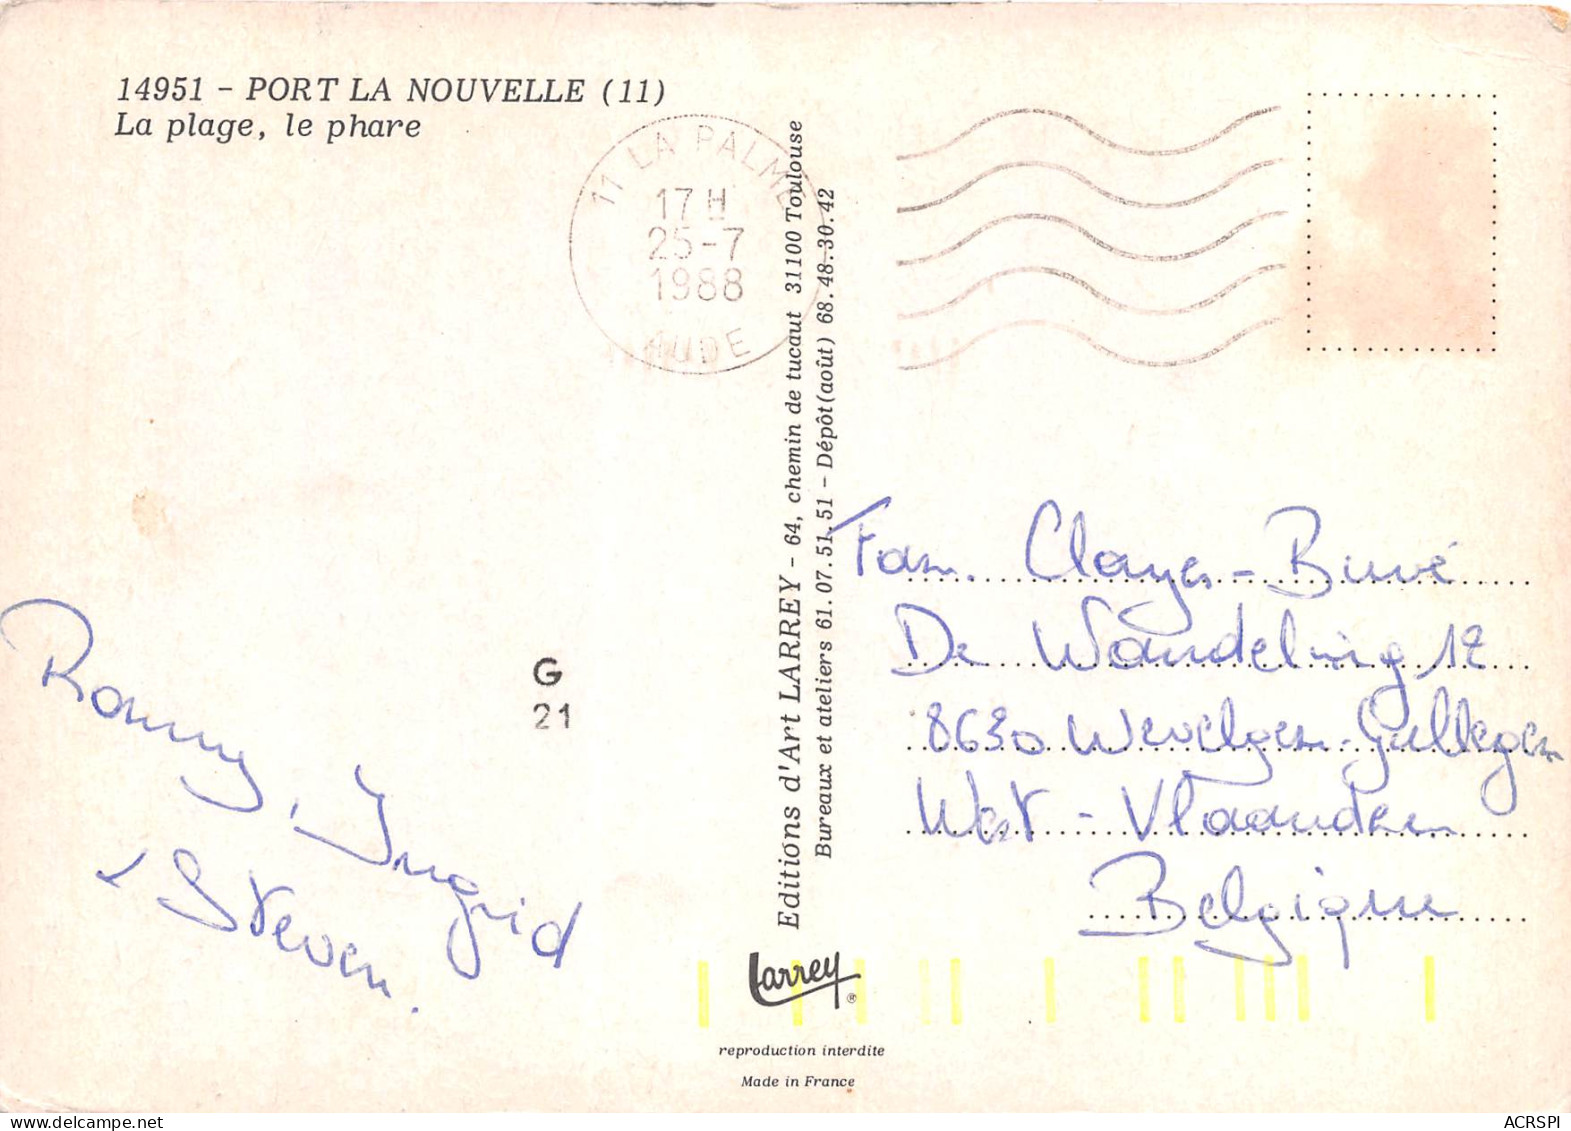 14951 - PORT LA NOUVELLE (11)
La plage, le phare
11 LA PALME
17 H
25-7
1988
AUDE
Editions d'Art LARREY - 64, chemin de tucaut 31100 Toulouse
Bureaux et ateliers 61.07.51.51 - Dépôt (août) 68.48.30.42
Fam. Clayes - Buvé
De Wandeling 12
8630 Wevelgem-Gullegem
West - Vlaanderen
Belgique
G
21
Ronny, Ingrid
+ Steven.
Larrey ®
reproduction interdite
Made in France
ACRSPI